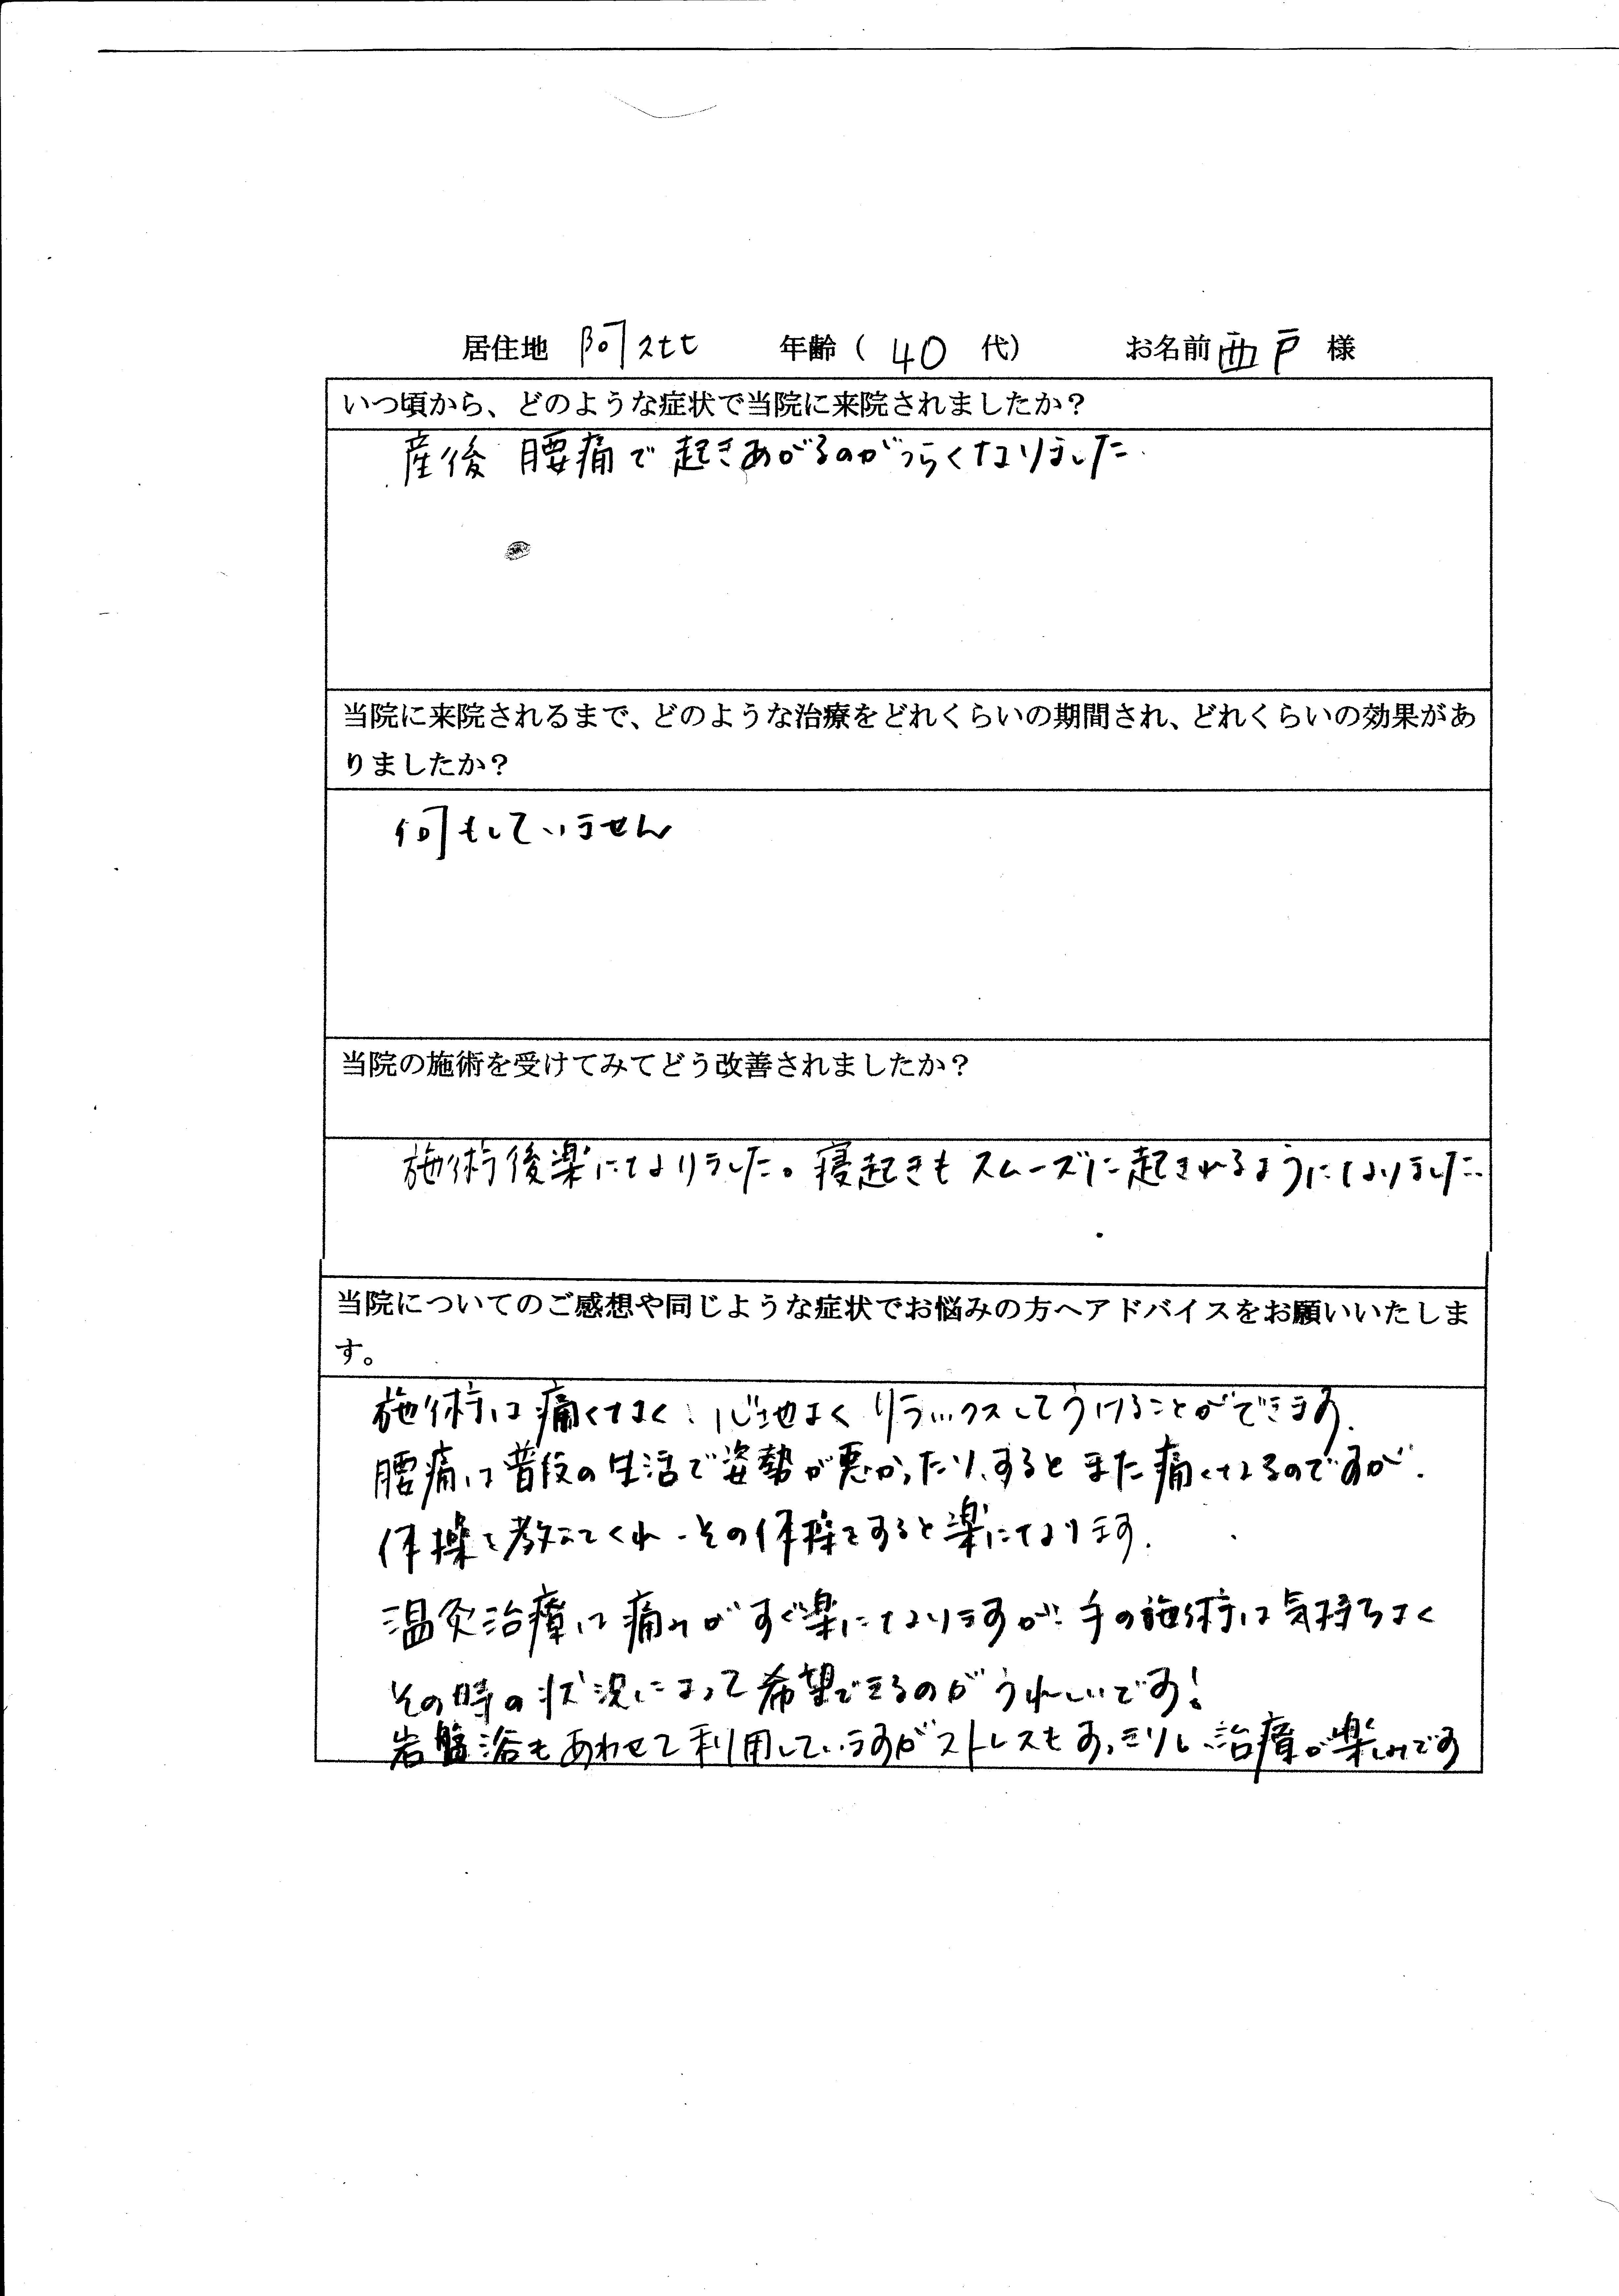 居住地 阿久比 年齢( 40 代) お名前 西戸 様
いつ頃から、どのような症状で当院に来院されましたか?
産後 腰痛で起きあがるのがつらくなりました
当院に来院されるまで、どのような治療をどれくらいの期間され、どれくらいの効果があ
りましたか?
何もしていません
当院の施術を受けてみてどう改善されましたか?
施術後楽になりました。寝起きもスムーズに起きれるようになりました
当院についてのご感想や同じような症状でお悩みの方へアドバイスをお願いいたしま
す。
施術は痛くなく、心地よくリラックスしてうけることができます。
腰痛は普段の生活で姿勢が悪かったり、するとまた痛くなるのですが、
体操を教えてくれ、その体操をすると楽になります。
温灸治療は痛みがすぐ楽になりますが、手の施術は気持ちよく
その時の状況によって希望できるのがうれしいです!
岩盤浴もあわせて利用していますがストレスもすっきりし、治療が楽しみです